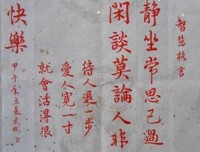 智慧格言
靜坐常思己過
閑談莫論人非
待人退一步
愛人寬一寸
就會活得很
快樂